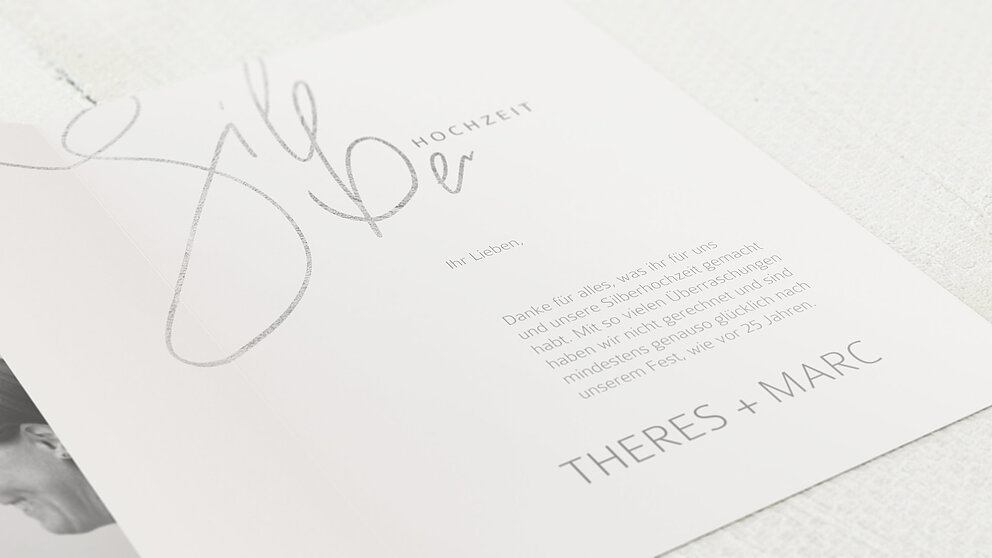 Silber
HOCHZEIT
Ihr Lieben,
Danke für alles, was ihr für uns
und unsere Silberhochzeit gemacht
habt. Mit so vielen Überraschungen
haben wir nicht gerechnet und sind
mindestens genauso glücklich nach
unserem Fest, wie vor 25 Jahren.
THERES + MARC